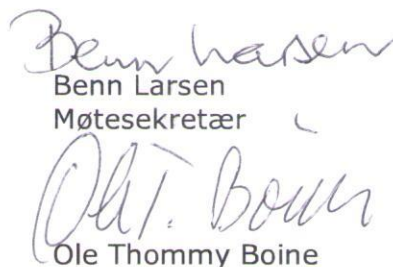 Benn Larsen
Benn Larsen
Møtesekretær
Ole T. Boine
Ole Thommy Boine